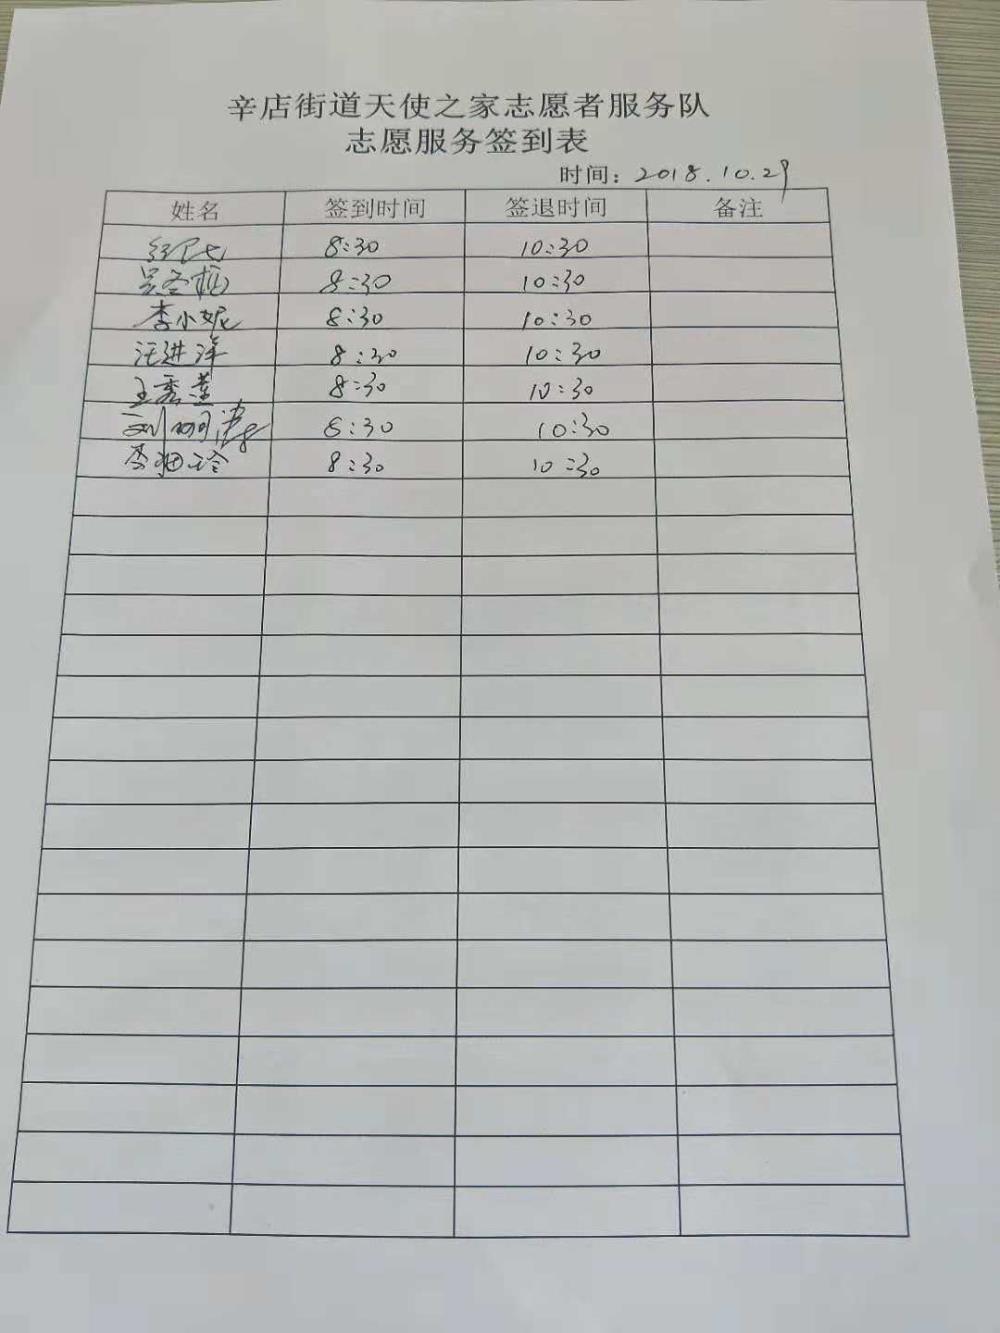 辛店街道天使之家志愿者服务队
志愿服务签到表
时间：2018.10.29
姓名 签到时间 签退时间 备注
8:30 10:30
8:30 10:30
李小妮 8:30 10:30
汪进洋 8:30 10:30
王秀莲 8:30 10:30
8:30 10:30
8:30 10:30